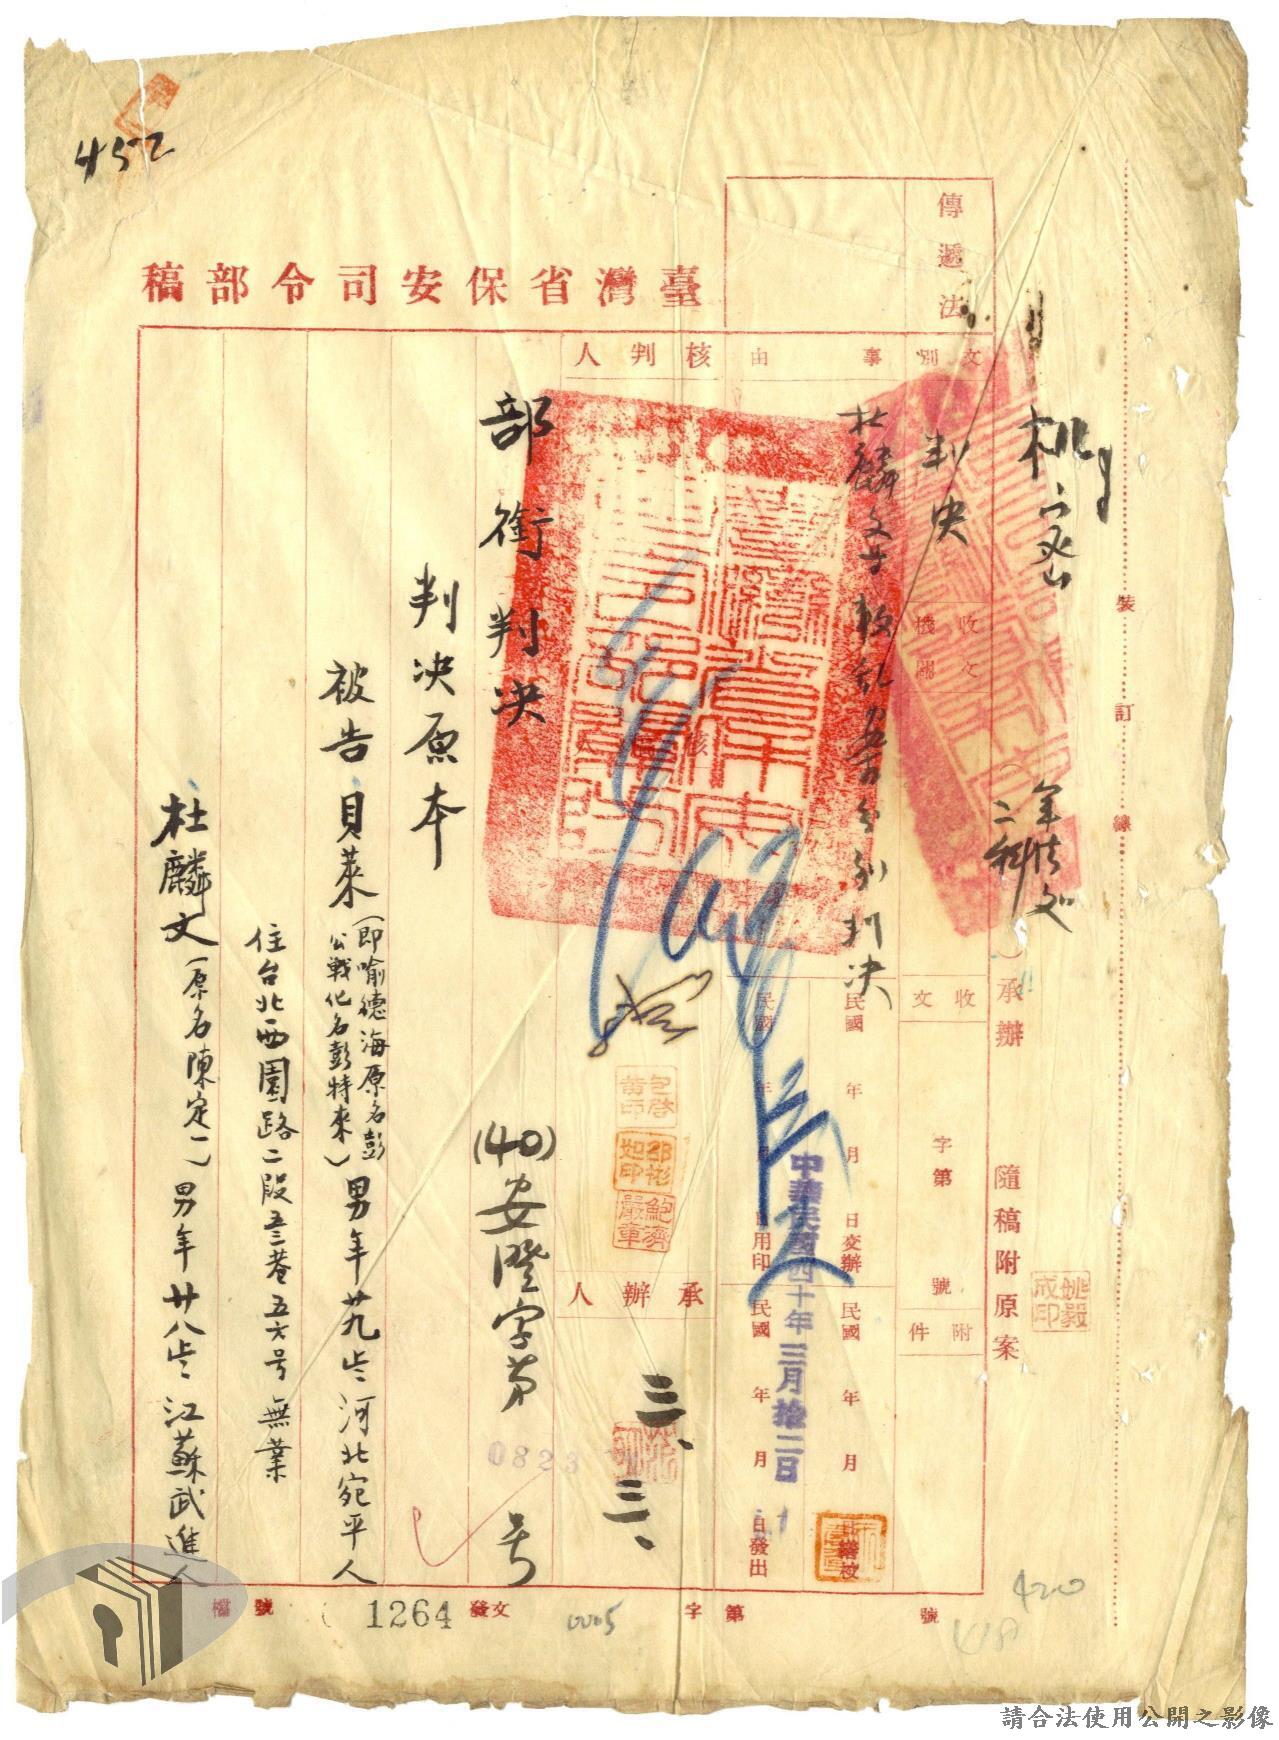 452
臺灣省保安司令部稿
傳遞法
機密
軍法處
二科
承辦
隨稿附原案
裝訂線
文別
判決
收文機關
收文
字第
號
附件
事由
杜麟文等叛亂案分別判決
民國 年 月 日交辦
民國 年 月
民國 年 月 日用印
民國 年 月 日發出
中華民國四十年三月拾二日
核判人
承辦人
三、三、
部銜判決
(40)安澄字第
0823
号
判决原本
被告貝萊(即喻德海原名彭公戰化名彭特來)男年廿九歲河北宛平人
住台北西園路二段五三巷五六号無業
杜麟文(原名陳定一)男年廿八歲江蘇武進人
檔號
1264
發文
0005
字第
號
420
418
姚毅成印
鮑濟嚴章
請合法使用公開之影像